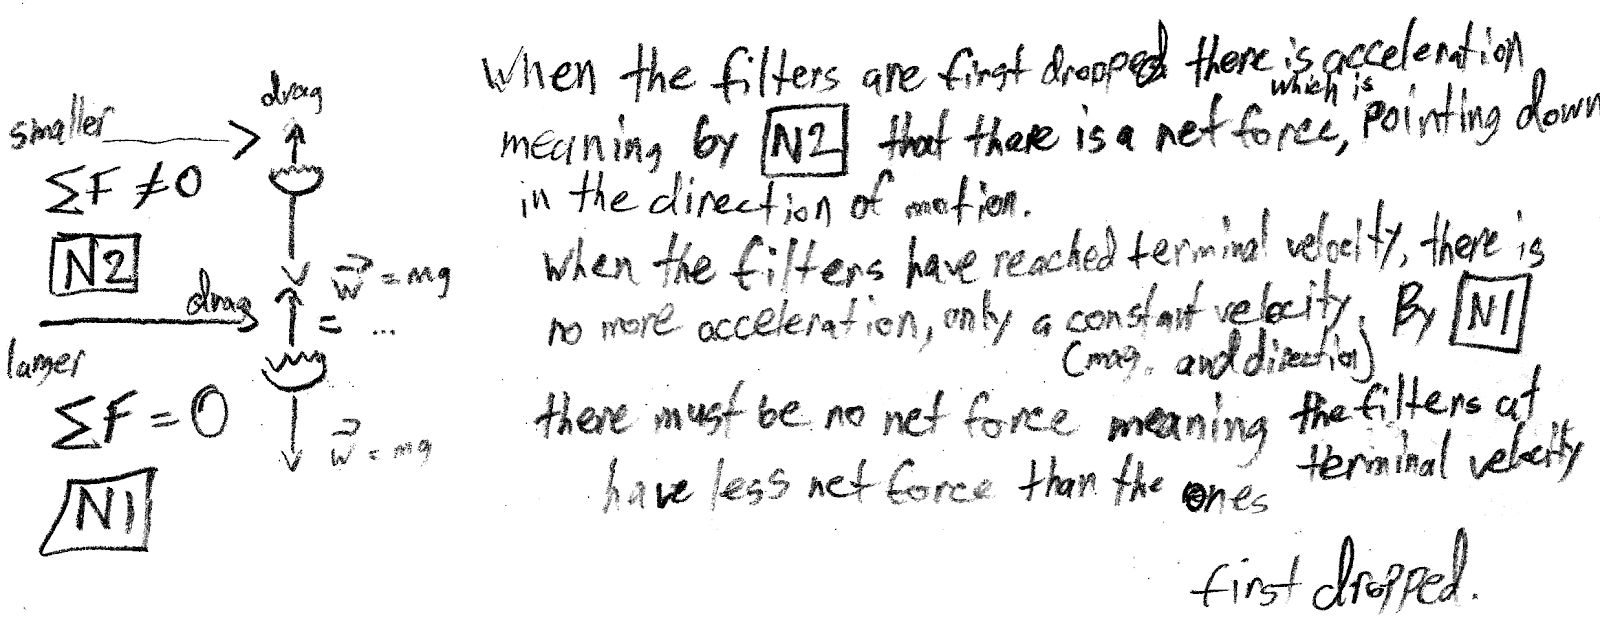 drag
smaller
ΣF ≠ 0
N2
w = mg
drag
= ...
larger
ΣF = 0
w = mg
N1
When the filters are first dropped there is acceleration
meaning by N2 that there is a net force, which is pointing down
in the direction of motion.
When the filters have reached terminal velocity, there is
no more acceleration, only a constant velocity. By N1
(mag. and direction)
there must be no net force meaning the filters at
terminal velocity
have less net force than the ones
first dropped.